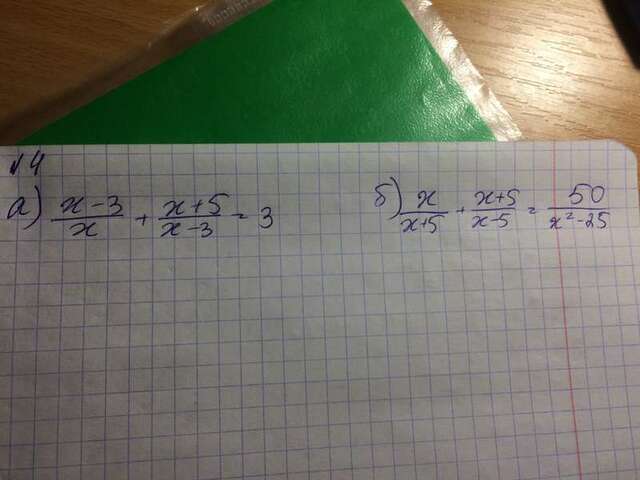 №4
а) (x-3)/x + (x+5)/(x-3) = 3
б) x/(x+5) + (x+5)/(x-5) = 50/(x²-25)